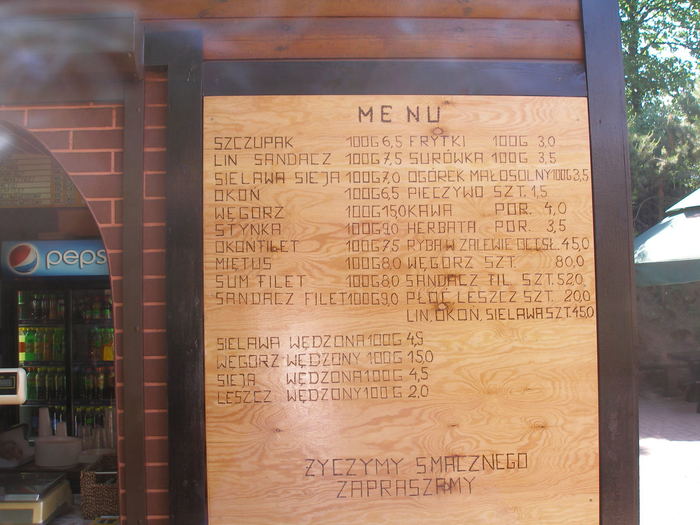 MENU
SZCZUPAK 100G 6,5 FRYTKI 100G 3,0
LIN SANDACZ 100G 7,5 SURÓWKA 100G 3,5
SIELAWA SIEJA 100G 7,0 OGÓREK MAŁOSOLNY 100G 3,5
OKOŃ 100G 6,5 PIECZYWO SZT. 1,5
WĘGORZ 100G 15,0 KAWA POR. 4,0
STYNKA 100G 9,0 HERBATA POR. 3,5
OKOŃ FILET 100G 7,5 RYBA W ZALEWIE OC.I SŁ. 45,0
MIĘTUS 100G 8,0 WĘGORZ SZT. 80,0
SUM FILET 100G 8,0 SANDACZ FIL. SZT. 52,0
SANDACZ FILET 100G 9,0 PŁOĆ, LESZCZ SZT. 20,0
LIN, OKOŃ, SIELAWA SZT. 45,0
SIELAWA WĘDZONA 100G 4,5
WĘGORZ WĘDZONY 100G 15,0
SIEJA WĘDZONA 100G 4,5
LESZCZ WĘDZONY 100G 2,0
ŻYCZYMY SMACZNEGO
ZAPRASZAMY
peps